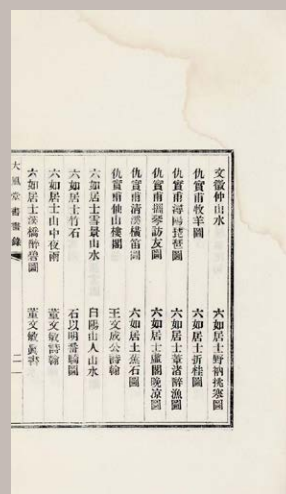 文徵仲山水
六如居士野衲挑寒圖
仇實甫牧羊圖
六如居士折桂圖
仇實甫潯陽琵琶圖
六如居士葦渚醉漁圖
仇實甫攜琴訪友圖
六如居士虛閣晚凉圖
仇實甫清溪橫笛圖
六如居士蕉石圖
仇實甫仙山樓閣
王文成公詩翰
六如居士雪景山水
白陽山人山水
六如居士竹石
石以明番騎圖
六如居士山中夜雨
董文敏詩翰
六如居士溪橋醉碧圖
董文敏眞書
大風堂書畫錄
二